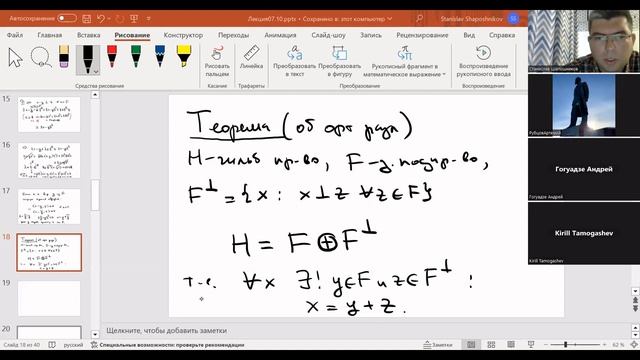 Автосохранение
Лекция07.10.pptx • Сохранено в: этот компьютер
Stanislav Shaposhnikov
SS
Рисование
Переходы
Анимация
Слайд-шоу
Запись
Рецензирование
Рисовать пальцем
Линейка
Преобразовать в текст
Преобразовать в фигуру
Рукописный фрагмент в математическое выражение
Воспроизведение рукописного ввода
Средства рисования
Трафареты
Преобразовать
Воспроизвести
15
16
17
18
19
20
Теорема (об орт разл)
H-гильб пр-во, F-з. подпр-во,
F⊥ = {x : x ⊥ z ∀z∈F}
H = F ⊕ F⊥
т.е. ∀x ∃! y∈F и z∈F⊥ :
x = y + z.
Щелкните, чтобы добавить заметки
Слайд 18 из 40
русский
Специальные возможности: проверьте рекомендации
Заметки
62 %
Станислав Шапошников
Гогуадзе Андрей
Гогуадзе Андрей
Kirill Tamogashev
Kirill Tamogashev